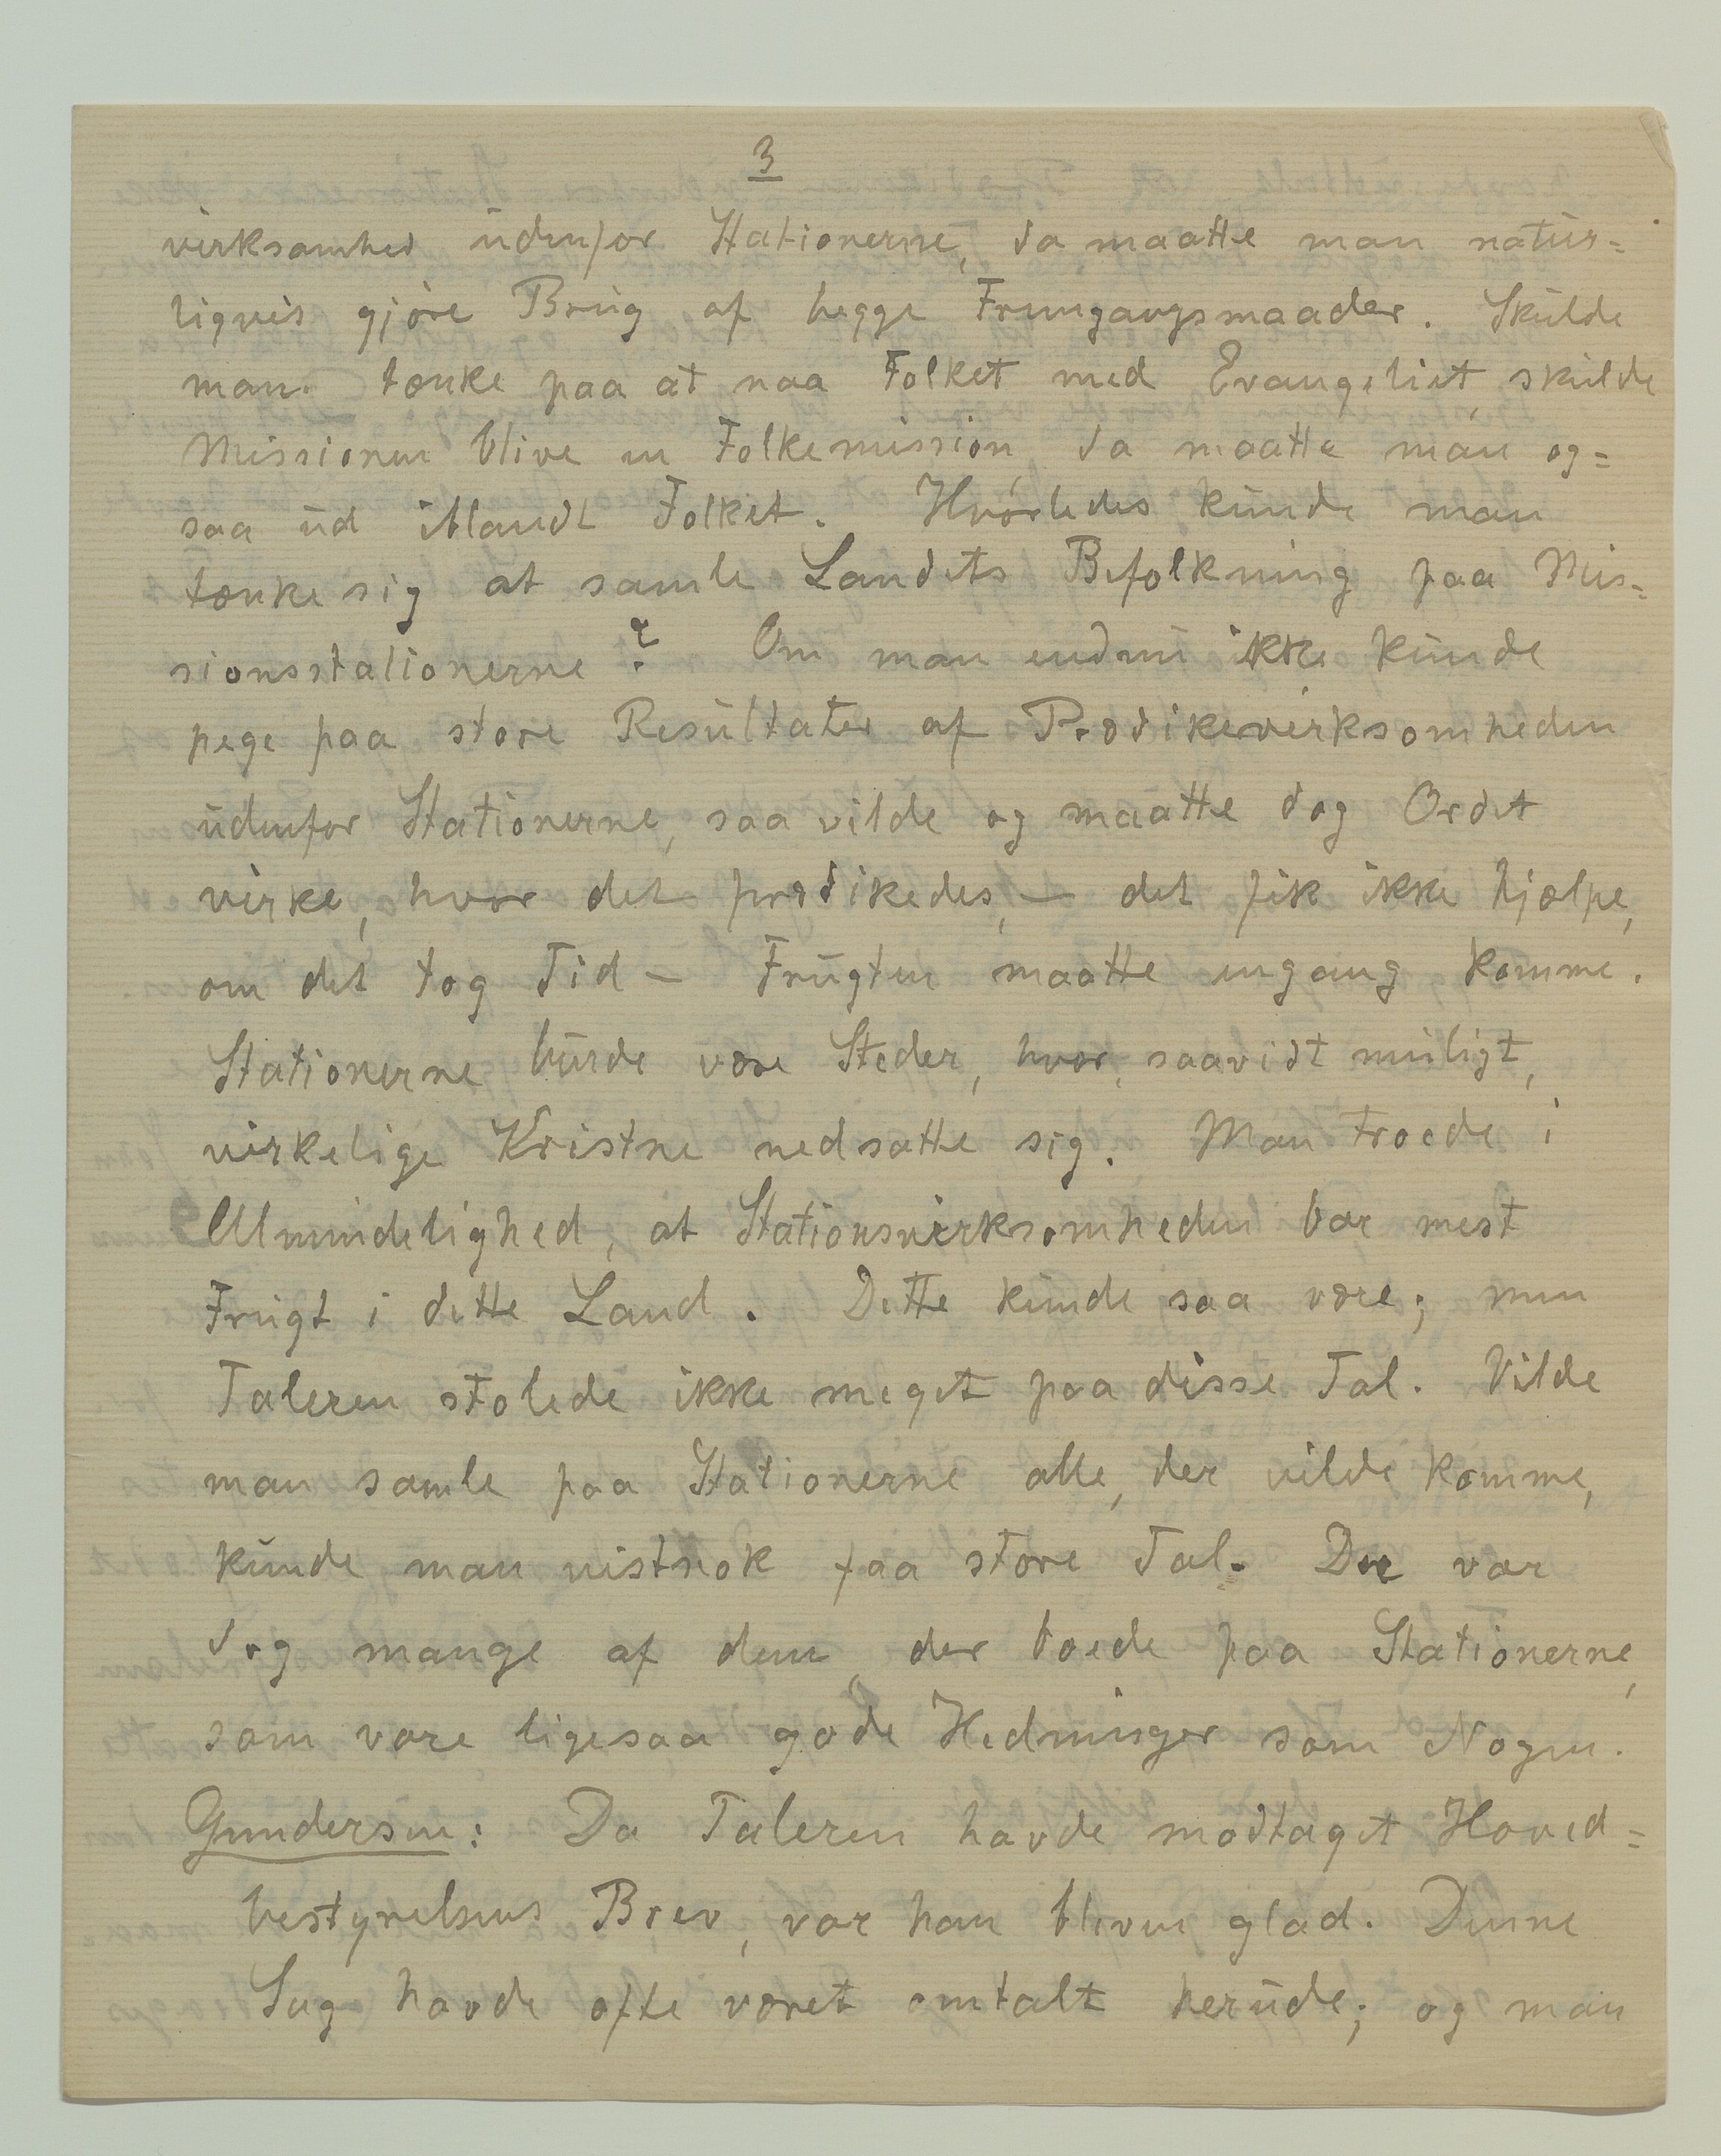 3
virksomhed udenfor Stationerne, da maatte man natur=
ligvis gjøre Brug af begge Fremgangsmaader. Skulde
man tænke paa at naa Folket med Evangeliet, skulde
Missionen blive en Folkemission, da maatte man og=
saa ud iblandt Folket. Hvorledes kunde man
tænke sig at samle Landets Befolkning paa Mis=
sionsstationerne? Om man endnu ikke kunde
pege paa store Resultater af Prædikevirksomheden
udenfor Stationerne, saa vilde og maatte dog Ordet
virke, hvor det prædikedes, — det fik ikke hjælpe,
om det tog Tid — Frugten maatte engang komme.
Stationerne burde være Steder, hvor, saavidt muligt,
virkelige Kristne nedsatte sig. Man troede i
Almindelighed, at Stationsvirksomheden bar mest
Frugt i dette Land. Dette kunde saa være; men
Taleren stolede ikke meget paa disse Tal. Vilde
man samle paa Stationerne alle, der vilde komme,
kunde man vistnok faa store Tal. Der var
dog mange af dem, der boede paa Stationerne,
som vare ligesaa gode Hedninger som Nogen.
Gundersen: Da Taleren havde modtaget Hoved=
bestyrelsens Brev, var han bleven glad. Denne
Sag havde ofte været omtalt herude; og man